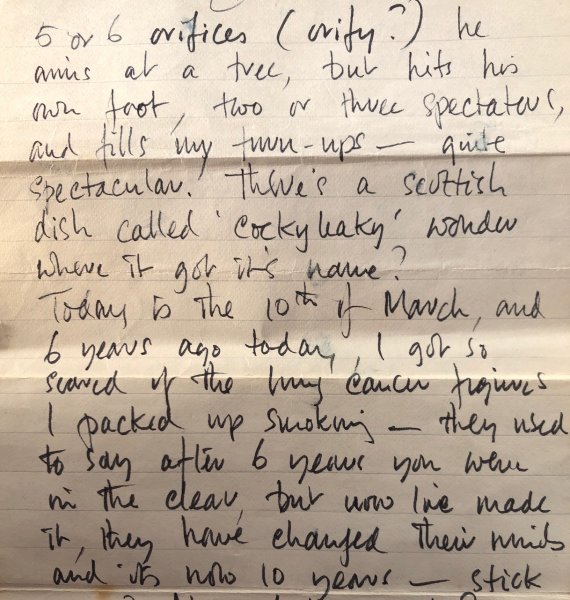 5 or 6 orifices (orify?) he
aims at a tree, but hits his
own foot, two or three spectators,
and fills my turn-ups — quite
spectacular. There's a scottish
dish called 'cockyleaky' wonder
where it got it's name?
Today is the 10th of March, and
6 years ago today, I got so
scared of the lung cancer figures
I packed up smoking — they used
to say after 6 years you were
in the clear, but now I've made
it, they have changed their minds
and it's now 10 years — stick